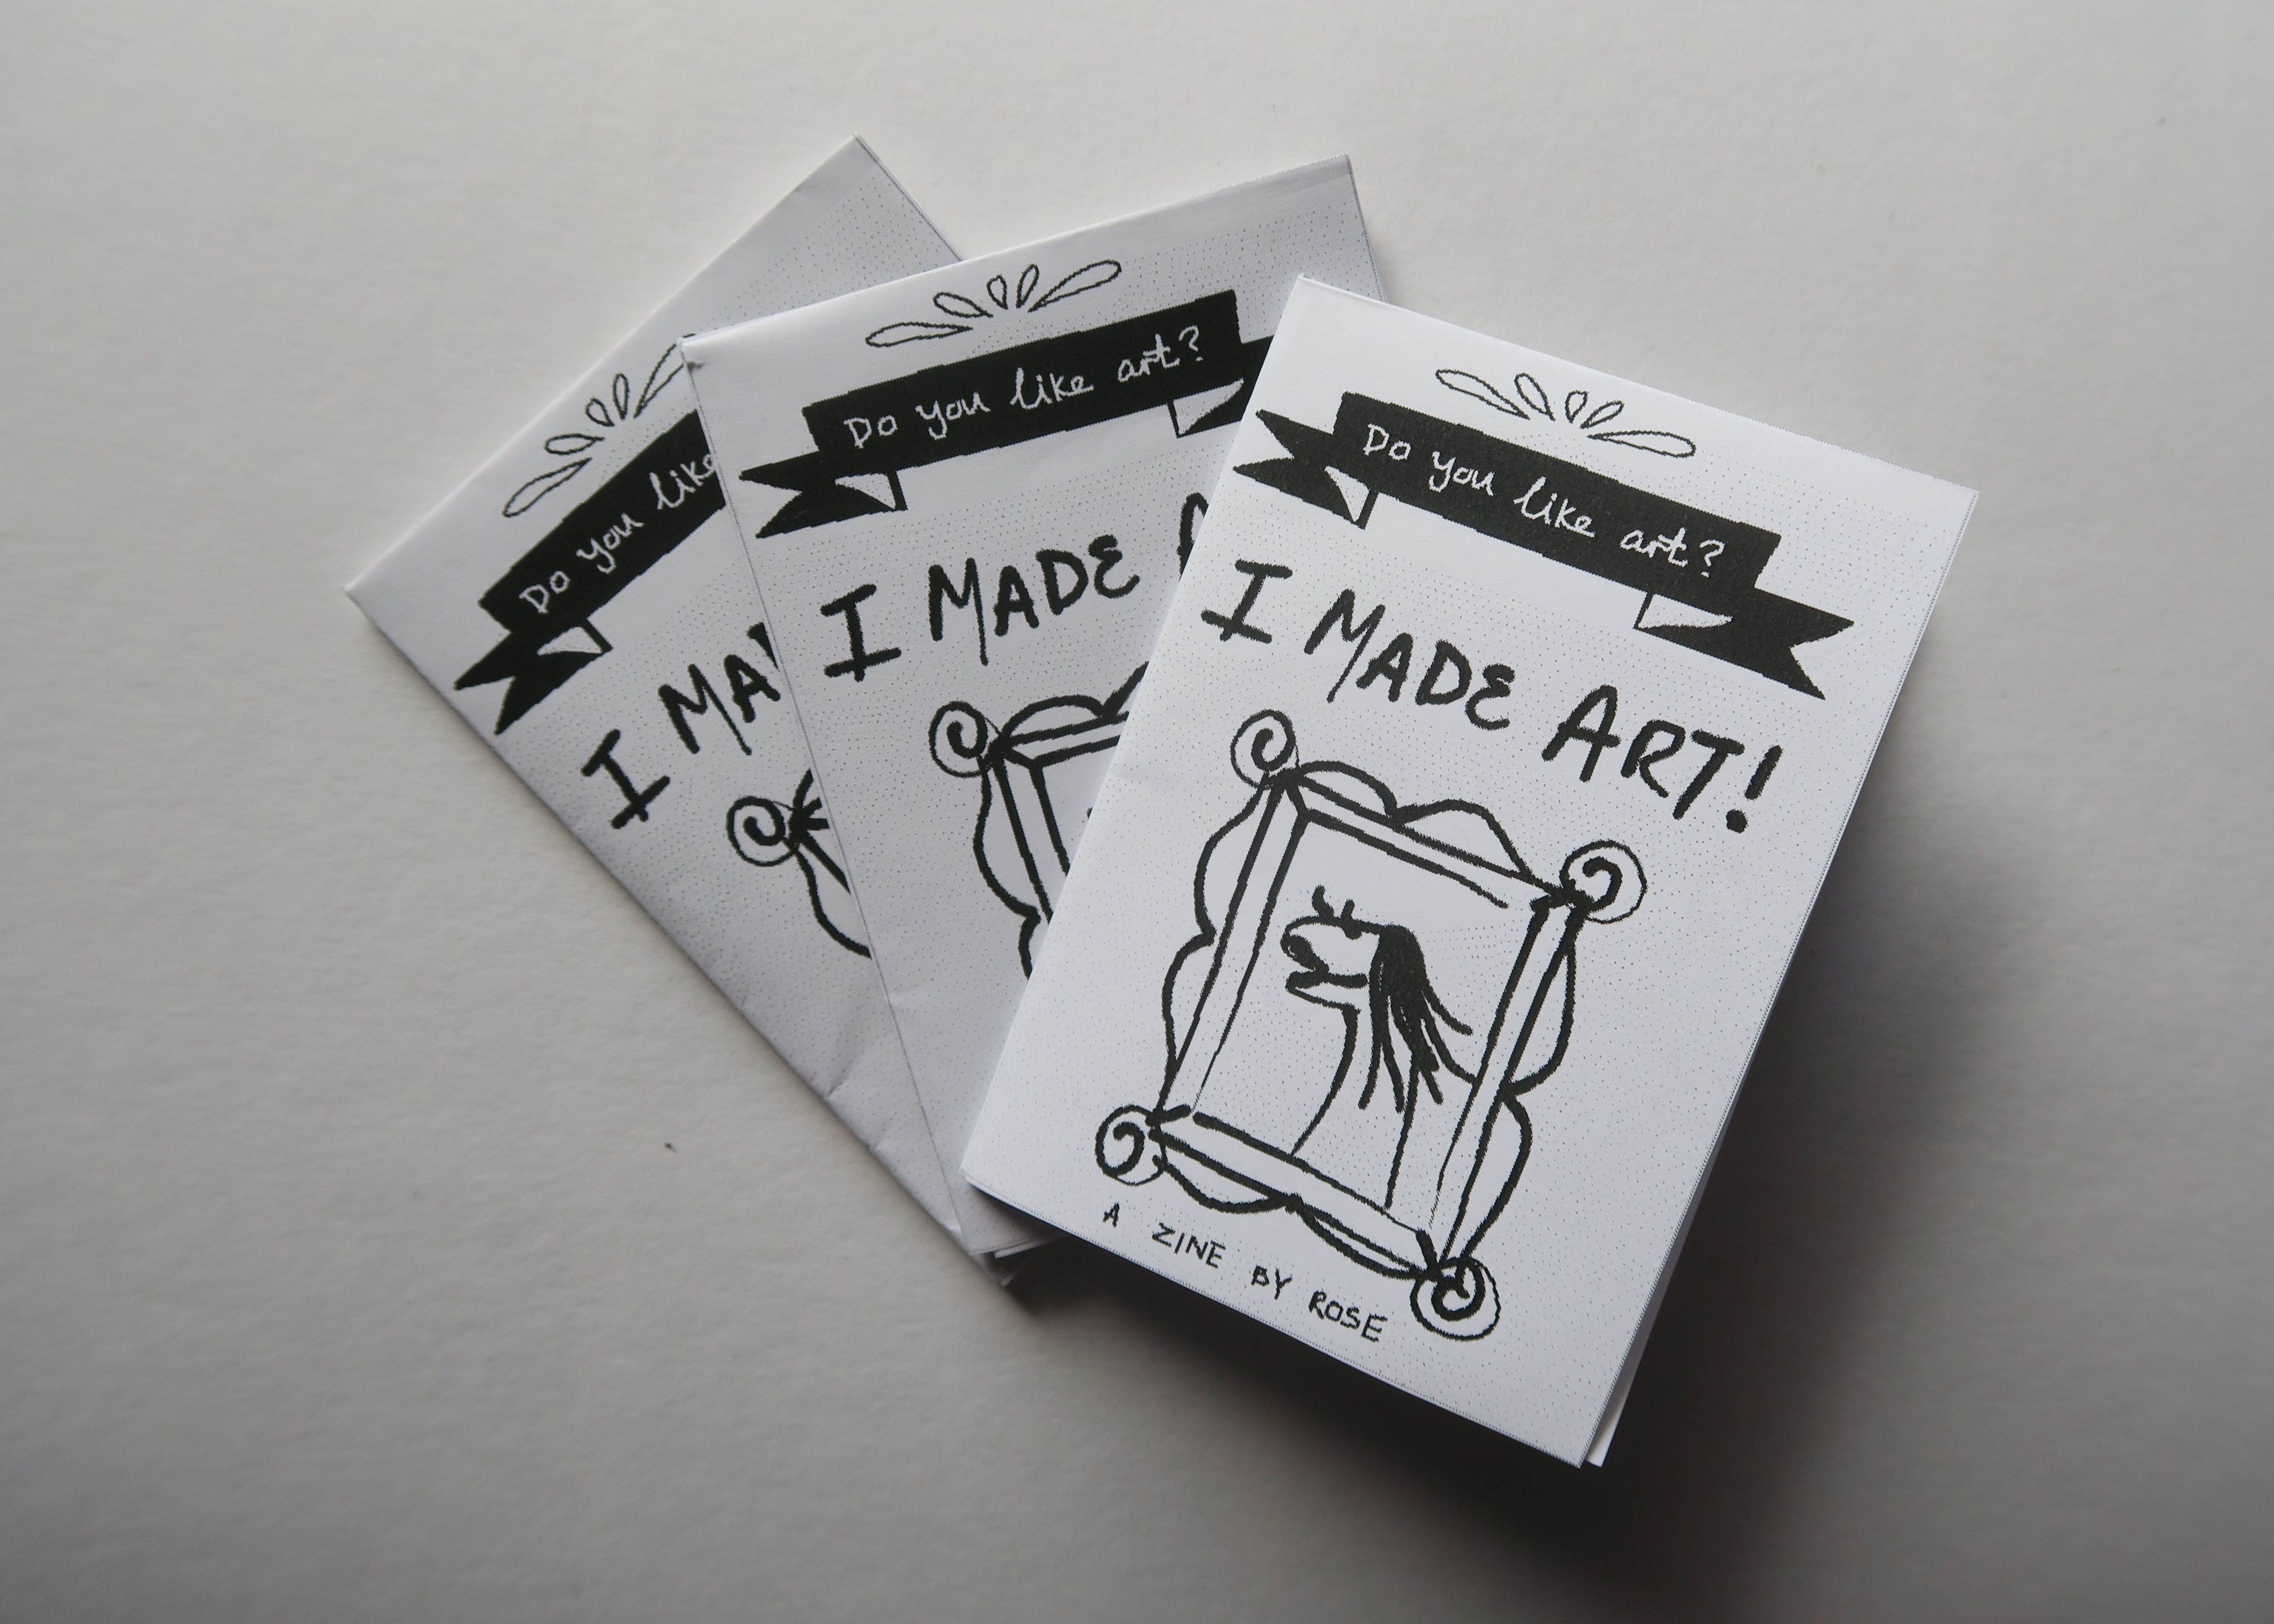 Do you like
I MA
Do you like art?
I MADE
Do you like art?
I MADE ART!
A ZINE BY ROSE